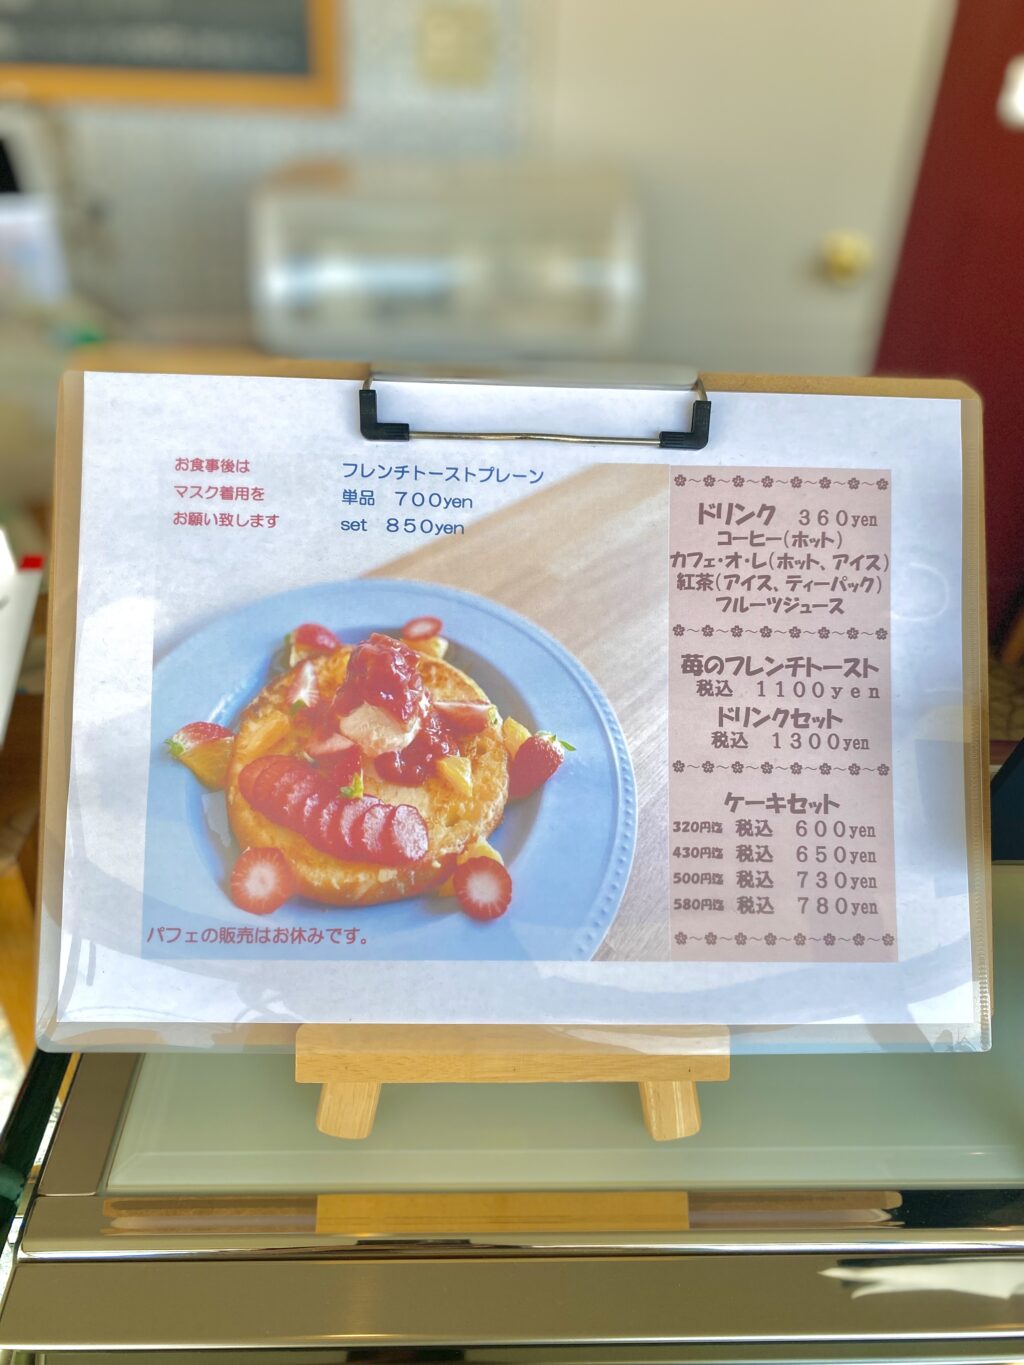 お食事後は
マスク着用を
お願い致します
フレンチトーストプレーン
単品 700yen
set 850yen
パフェの販売はお休みです。
ドリンク 360yen
コーヒー(ホット)
カフェ・オ・レ(ホット、アイス)
紅茶(アイス、ティーパック)
フルーツジュース
苺のフレンチトースト
税込 1100yen
ドリンクセット
税込 1300yen
ケーキセット
320円迄 税込 600yen
430円迄 税込 650yen
500円迄 税込 730yen
580円迄 税込 780yen